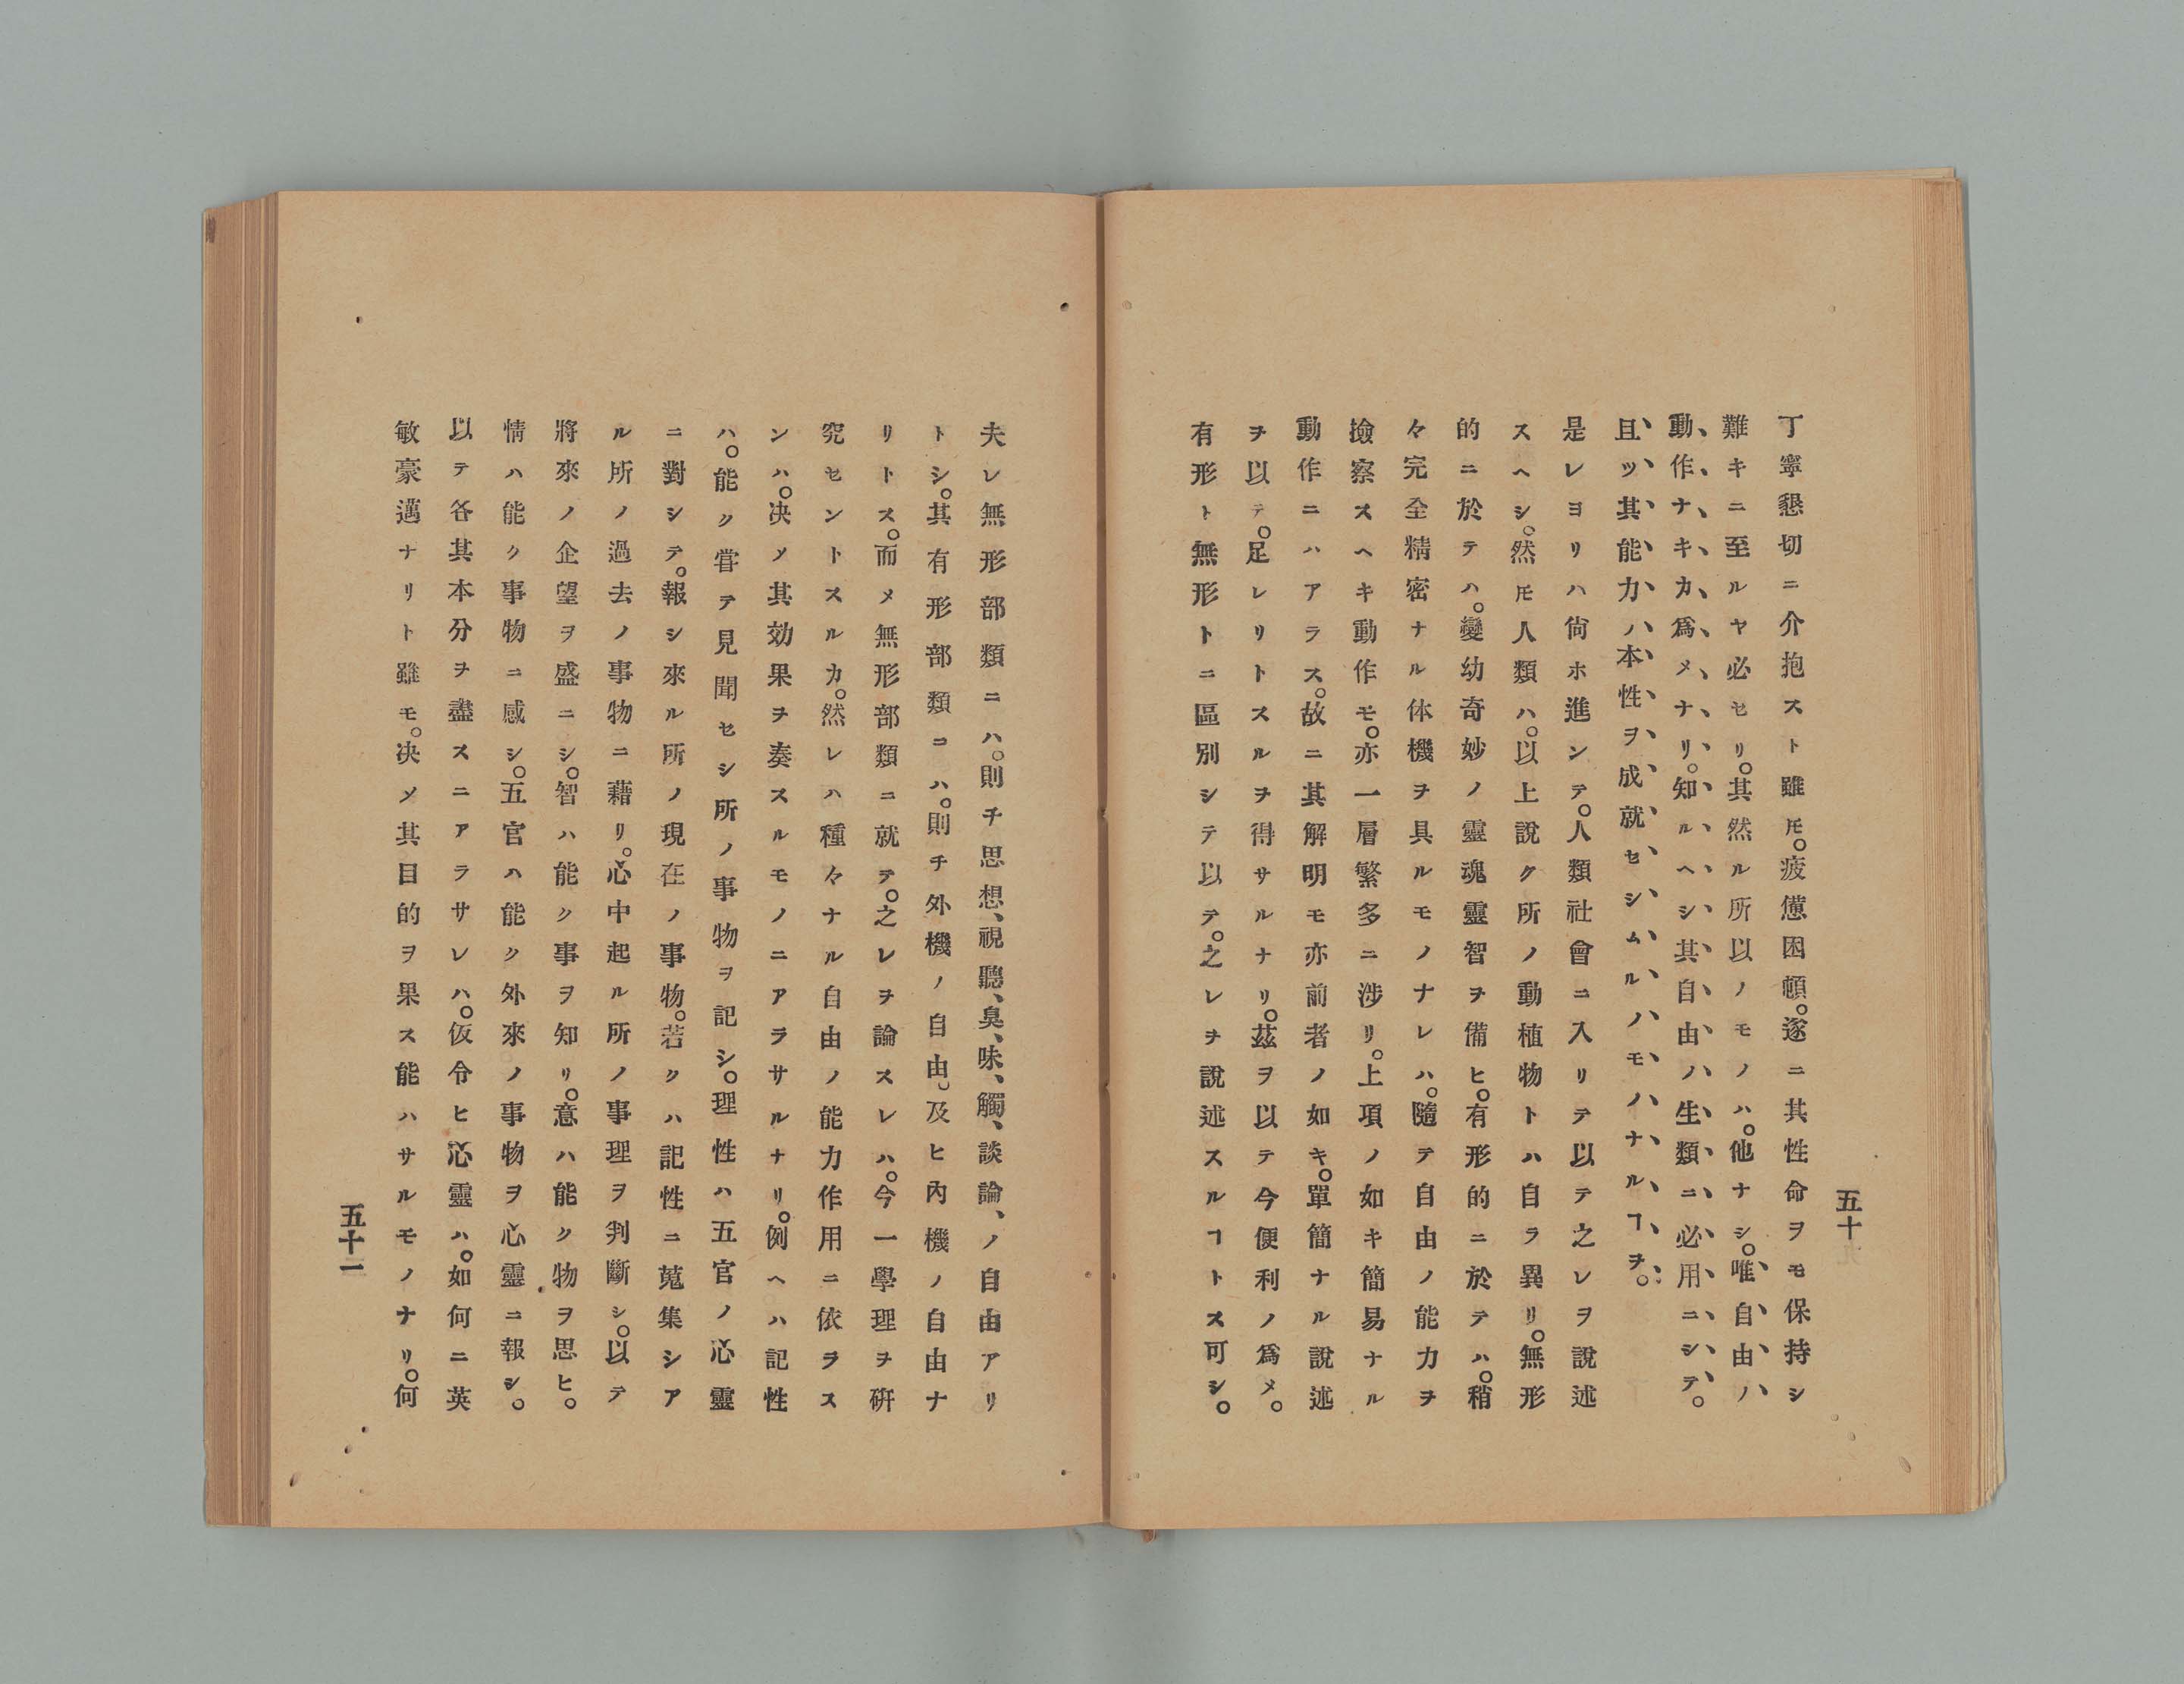 五十
丁寧懇切ニ介抱スト雖𪜈。疲憊困頓。遂ニ其性命ヲモ保持シ
難キニ至ルヤ必セリ。其然ル所以ノモノハ。他ナシ。唯自由ノ
動作ナキカ爲メナリ。知ルヘシ其自由ノ生類ニ必用ニシテ。
且ツ其能力ハ本性ヲ成就セシムルノモノナルヿヲ。
是レヨリハ尙ホ進ンテ。人類社會ニ入リテ以テ之レヲ說述
スヘシ。然𪜈人類ハ。以上說ク所ノ動植物トハ自ラ異リ。無形
的ニ於テハ。變幼奇妙ノ靈魂靈智ヲ備ヒ。有形的ニ於テハ。稍
々完全精密ナル体機ヲ具ルモノナレハ。隨テ自由ノ能力ヲ
撿察スヘキ動作モ。亦一層繁多ニ涉リ。上項ノ如キ簡易ナル
動作ニハアラス。故ニ其解明モ亦前者ノ如キ。單簡ナル說述
ヲ以テ。足レリトスルヲ得サルナリ。茲ヲ以テ今便利ノ爲メ。
有形ト無形トニ區別シテ以テ。之レヲ說述スルヿトス可シ。
夫レ無形部類ニハ。則チ思想、視聽、臭、味、觸、談論、ノ自由アリ
トシ。其有形部類コハ。則チ外機ノ自由。及ヒ內機ノ自由ナ
リトス。而メ無形部類ニ就テ。之レヲ論スレハ。今一學理ヲ硏
究セントスルカ。然レハ種々ナル自由ノ能力作用ニ依ラス
ンハ。决メ其効果ヲ奏スルモノニアラサルナリ。例ヘハ記性
ハ。能ク甞テ見聞セシ所ノ事物ヲ記シ。理性ハ五官ノ心靈
ニ對シテ。報シ來ル所ノ現在ノ事物。若クハ記性ニ蒐集シア
ル所ノ過去ノ事物ニ藉リ。心中起ル所ノ事理ヲ判斷シ。以テ
將來ノ企望ヲ盛ニシ。智ハ能ク事ヲ知リ。意ハ能ク物ヲ思ヒ。
情ハ能ク事物ニ感シ。五官ハ能ク外來ノ事物ヲ心靈ニ報シ。
以テ各其本分ヲ盡スニアラサレハ。仮令ヒ心靈ハ。如何ニ英
敏豪邁ナリト雖モ。决メ其目的ヲ果ス能ハサルモノナリ。何
五十一